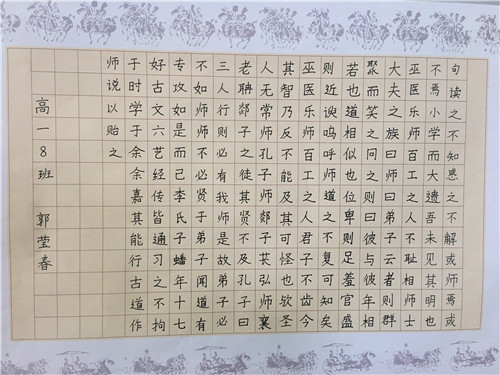 句读之不知惑之不解或师焉或
不焉小学而大遗吾未见其明也
巫医乐师百工之人不耻相师士
大夫之族曰师曰弟子云者则群
聚而笑之问之则曰彼与彼年相
若也道相似也位卑则足羞官盛
则近谀呜呼师道之不复可知矣
巫医乐师百工之人君子不齿今
其智乃反不能及其可怪也欤圣
人无常师孔子师郯子苌弘师襄
老聃郯子之徒其贤不及孔子曰
三人行则必有我师是故弟子必
不如师师不必贤于弟子闻道有
专攻如是而已李氏子蟠年十七
好古文六艺经传皆通习之不拘
于时学于余余嘉其能行古道作
师说以贻之
高一8班 郭莹春